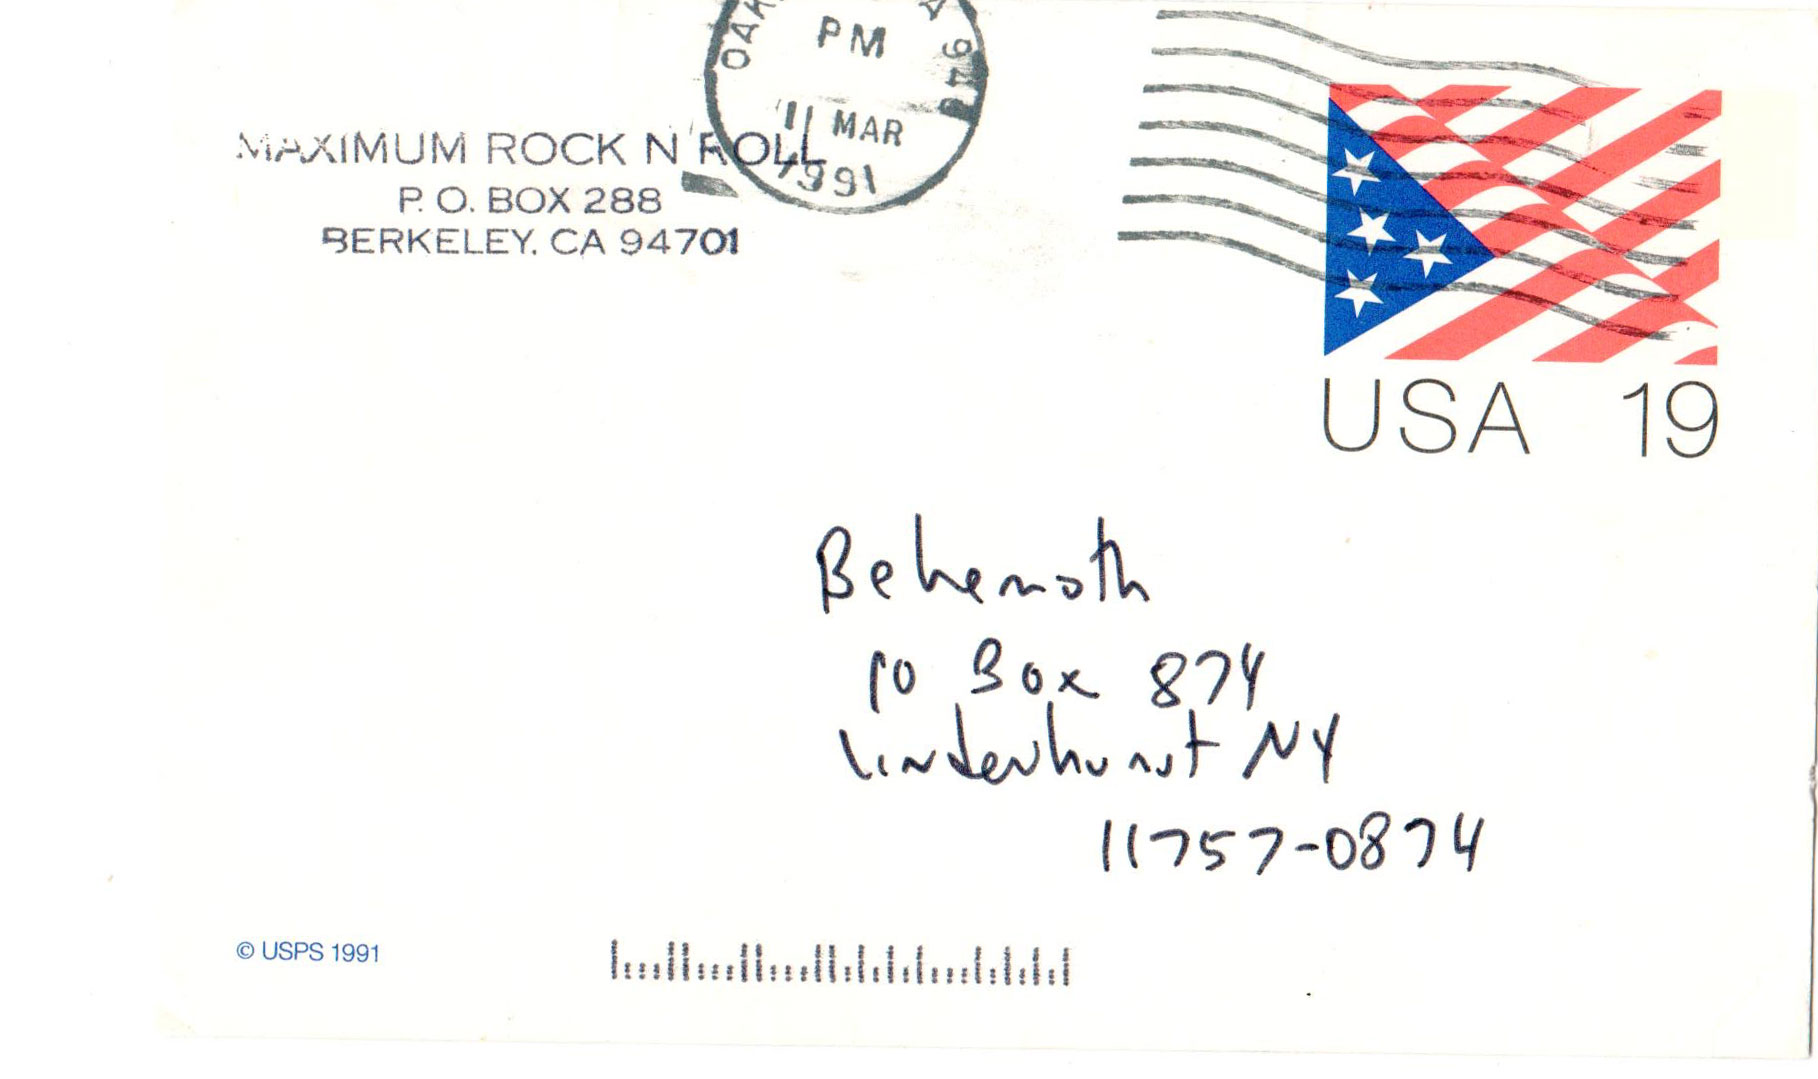 PM
11 MAR
1991
MAXIMUM ROCK N ROLL
P. O. BOX 288
BERKELEY, CA 94701
USA 19
Behemoth
PO Box 874
Lindenhurst NY
11757-0874
© USPS 1991